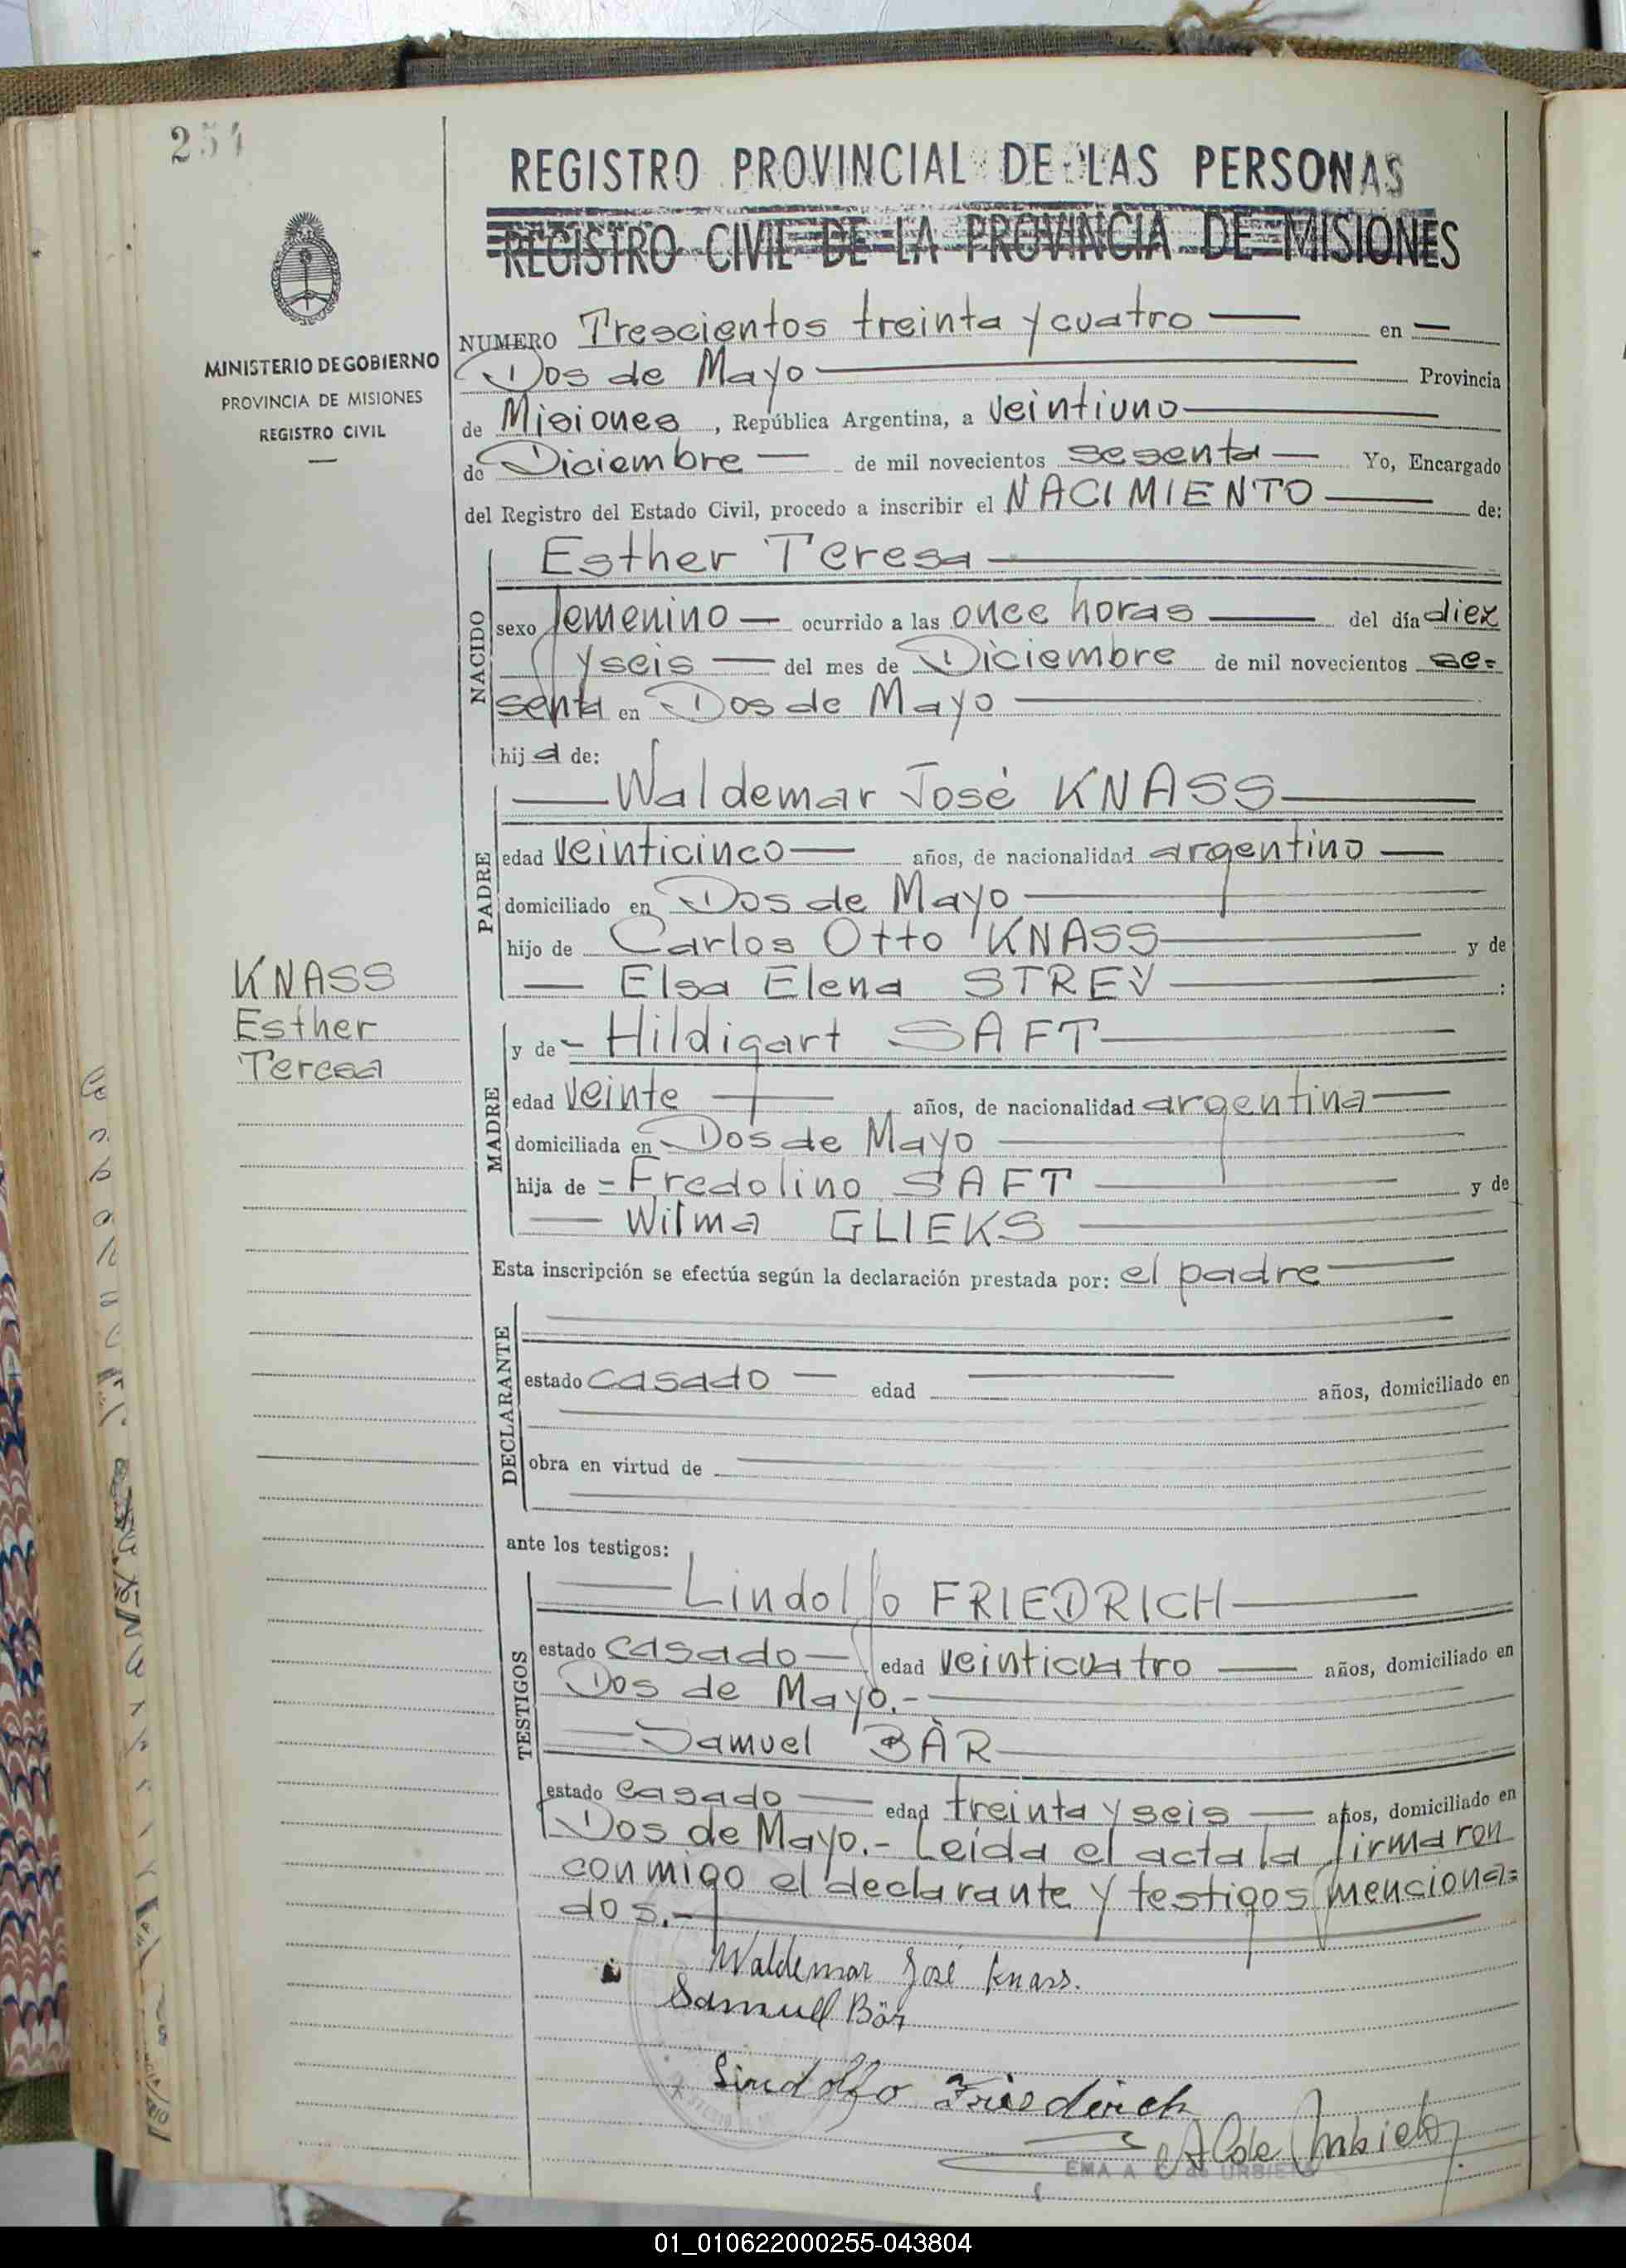 254
REGISTRO PROVINCIAL DE LAS PERSONAS
REGISTRO CIVIL DE LA PROVINCIA DE MISIONES
MINISTERIO DE GOBIERNO
PROVINCIA DE MISIONES
REGISTRO CIVIL
NUMERO Trescientos treinta y cuatro en
Dos de Mayo Provincia
de Misiones, República Argentina, a veintiuno
de Diciembre de mil novecientos sesenta Yo, Encargado
del Registro del Estado Civil, procedo a inscribir el NACIMIENTO de:
NACIDO
Esther Teresa
sexo femenino ocurrido a las once horas del día diez
y seis del mes de Diciembre de mil novecientos se=
senta en Dos de Mayo
hija de:
PADRE
Waldemar José KNASS
edad veinticinco años, de nacionalidad argentino
domiciliado en Dos de Mayo
hijo de Carlos Otto KNASS y de
Elsa Elena STREY:
KNASS
Esther
Teresa
MADRE
y de - Hildigart SAFT
edad veinte años, de nacionalidad argentina
domiciliada en Dos de Mayo
hija de - Fredolino SAFT y de
Wilma GLIEKS
Esta inscripción se efectúa según la declaración prestada por: el padre
DECLARANTE
estado casado edad años, domiciliado en
obra en virtud de
ante los testigos:
TESTIGOS
Lindolfo FRIEDRICH
estado casado edad veinticuatro años, domiciliado en
Dos de Mayo.-
Samuel BÄR
estado casado edad treinta y seis años, domiciliado en
Dos de Mayo.- Leída el acta la firmaron
conmigo el declarante y testigos menciona=
dos.-
Waldemar José Knass.
Samuel Bär
Lindolfo Friederich
01_010622000255-043804